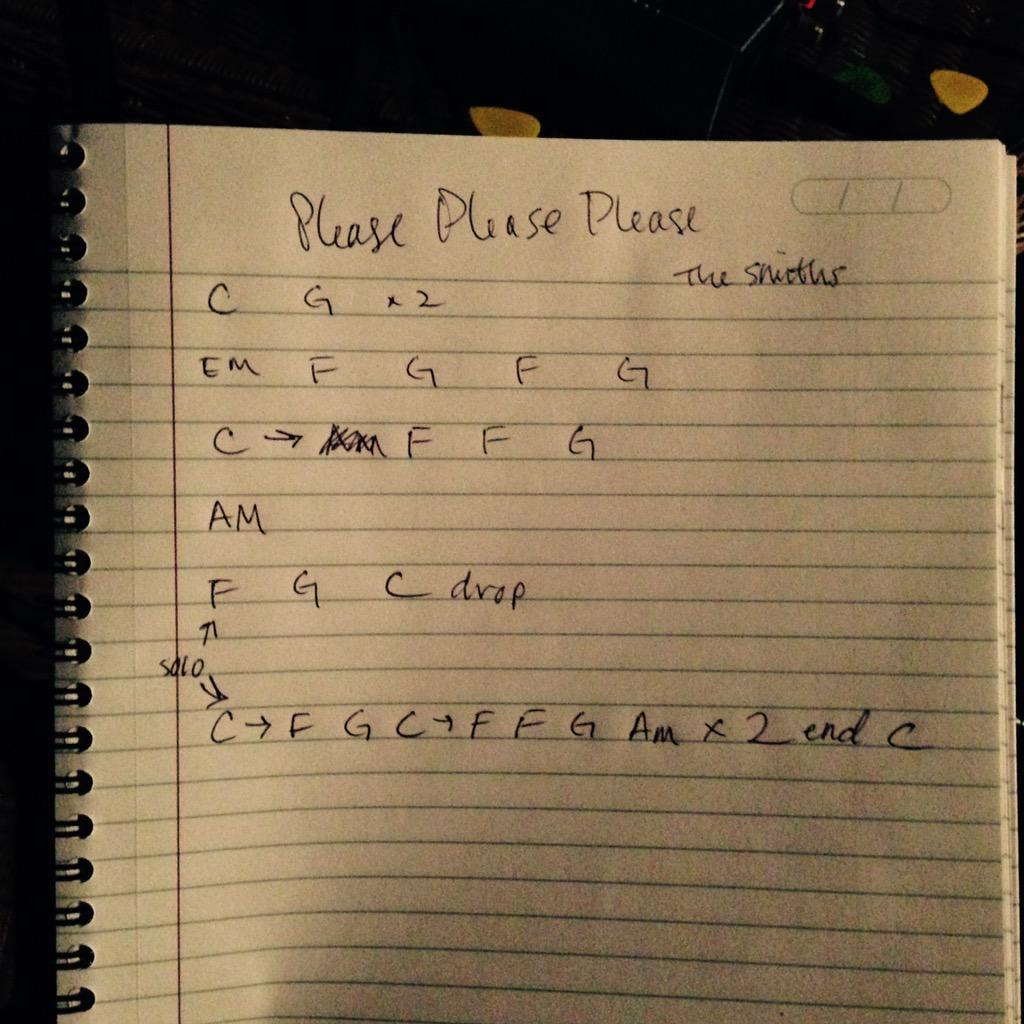 Please Please Please
The Smiths
C G x 2
EM F G F G
C → F F G
AM
F G C drop
↑
solo
↘
C → F G C → F F G Am x 2 end C